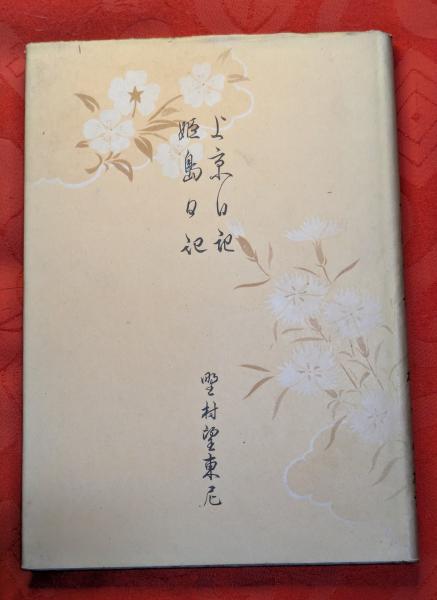 上京日記
姫島日記
野村望東尼